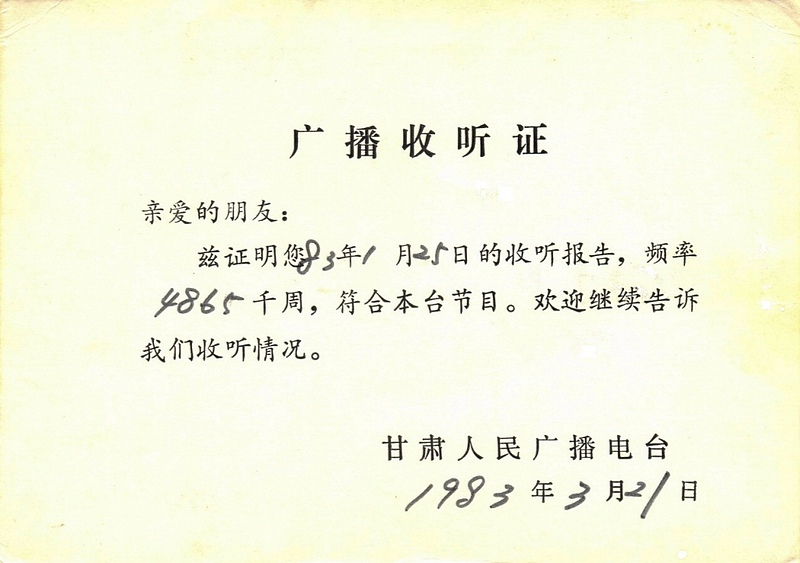 广播收听证
亲爱的朋友：
兹证明您83年1月25日的收听报告，频率
4865千周，符合本台节目。欢迎继续告诉
我们收听情况。
甘肃人民广播电台
1983年3月21日